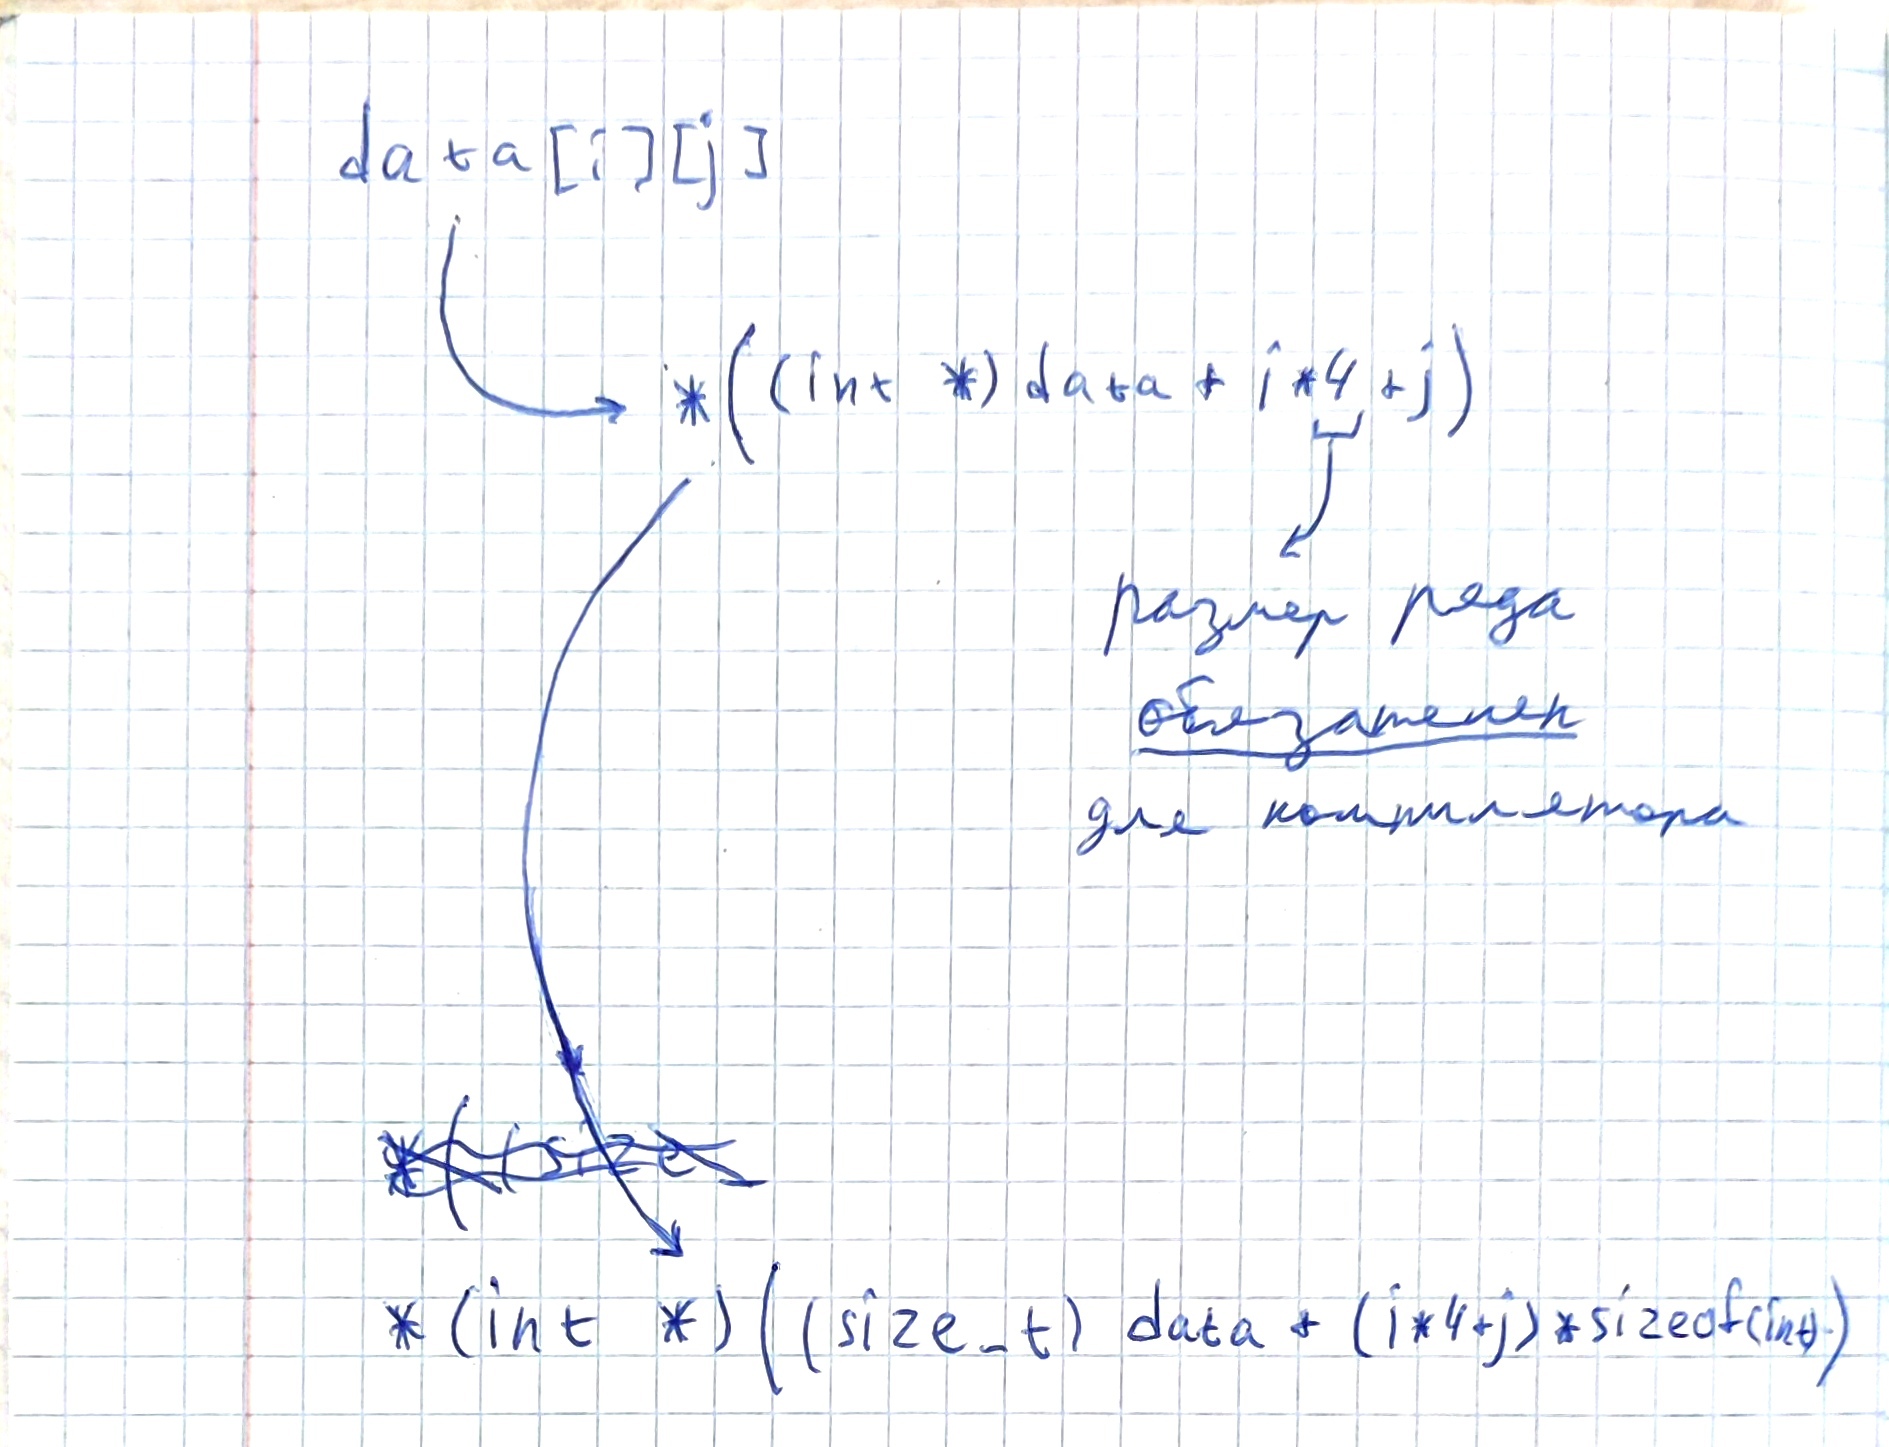 data[i][j]
*((int *) data + i*4 + j)
размер ряда
обязателен
для компилятора
*((size
*(int *)((size_t) data + (i*4+j) * sizeof(int))